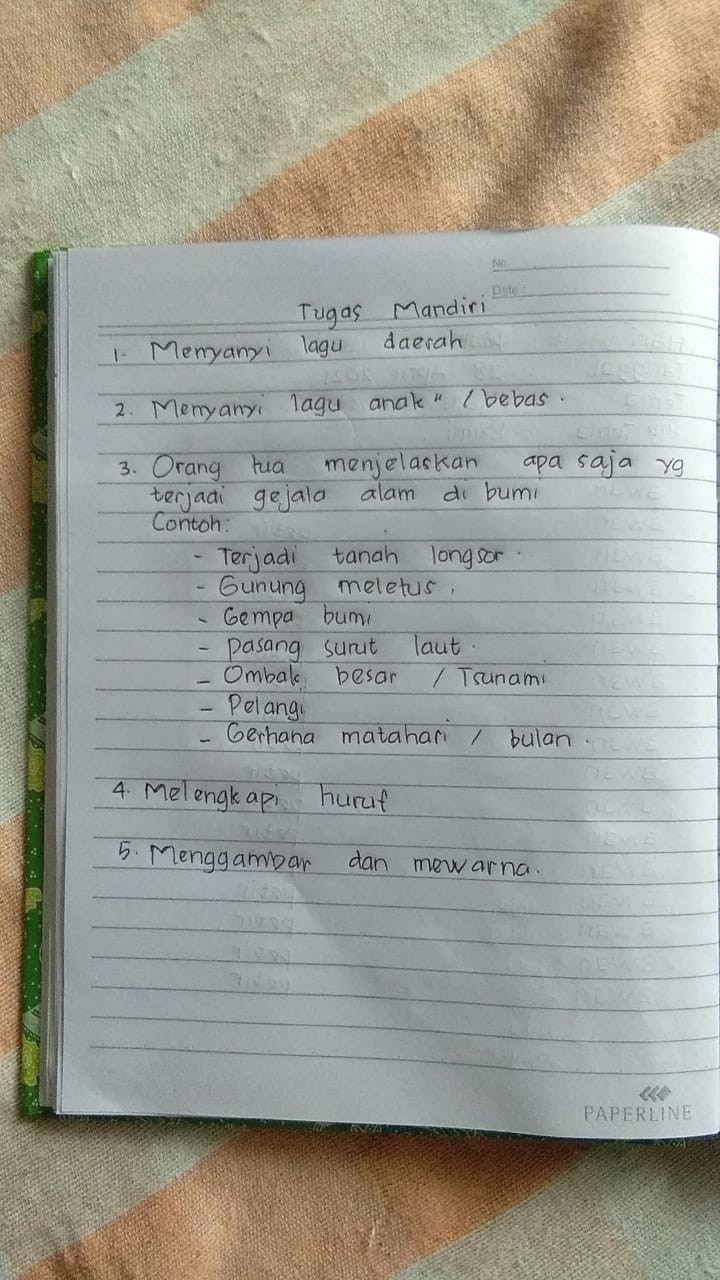 No.
Date :
Tugas Mandiri
1. Menyanyi lagu daerah
2. Menyanyi lagu anak" / bebas.
3. Orang tua menjelaskan apa saja yg
terjadi gejala alam di bumi
Contoh:
- Terjadi tanah longsor.
- Gunung meletus.
- Gempa bumi
- pasang surut laut.
- Ombak besar / Tsunami
- Pelangi
- Gerhana matahari / bulan.
4. Melengkapi huruf
5. Menggambar dan mewarna.
PAPERLINE